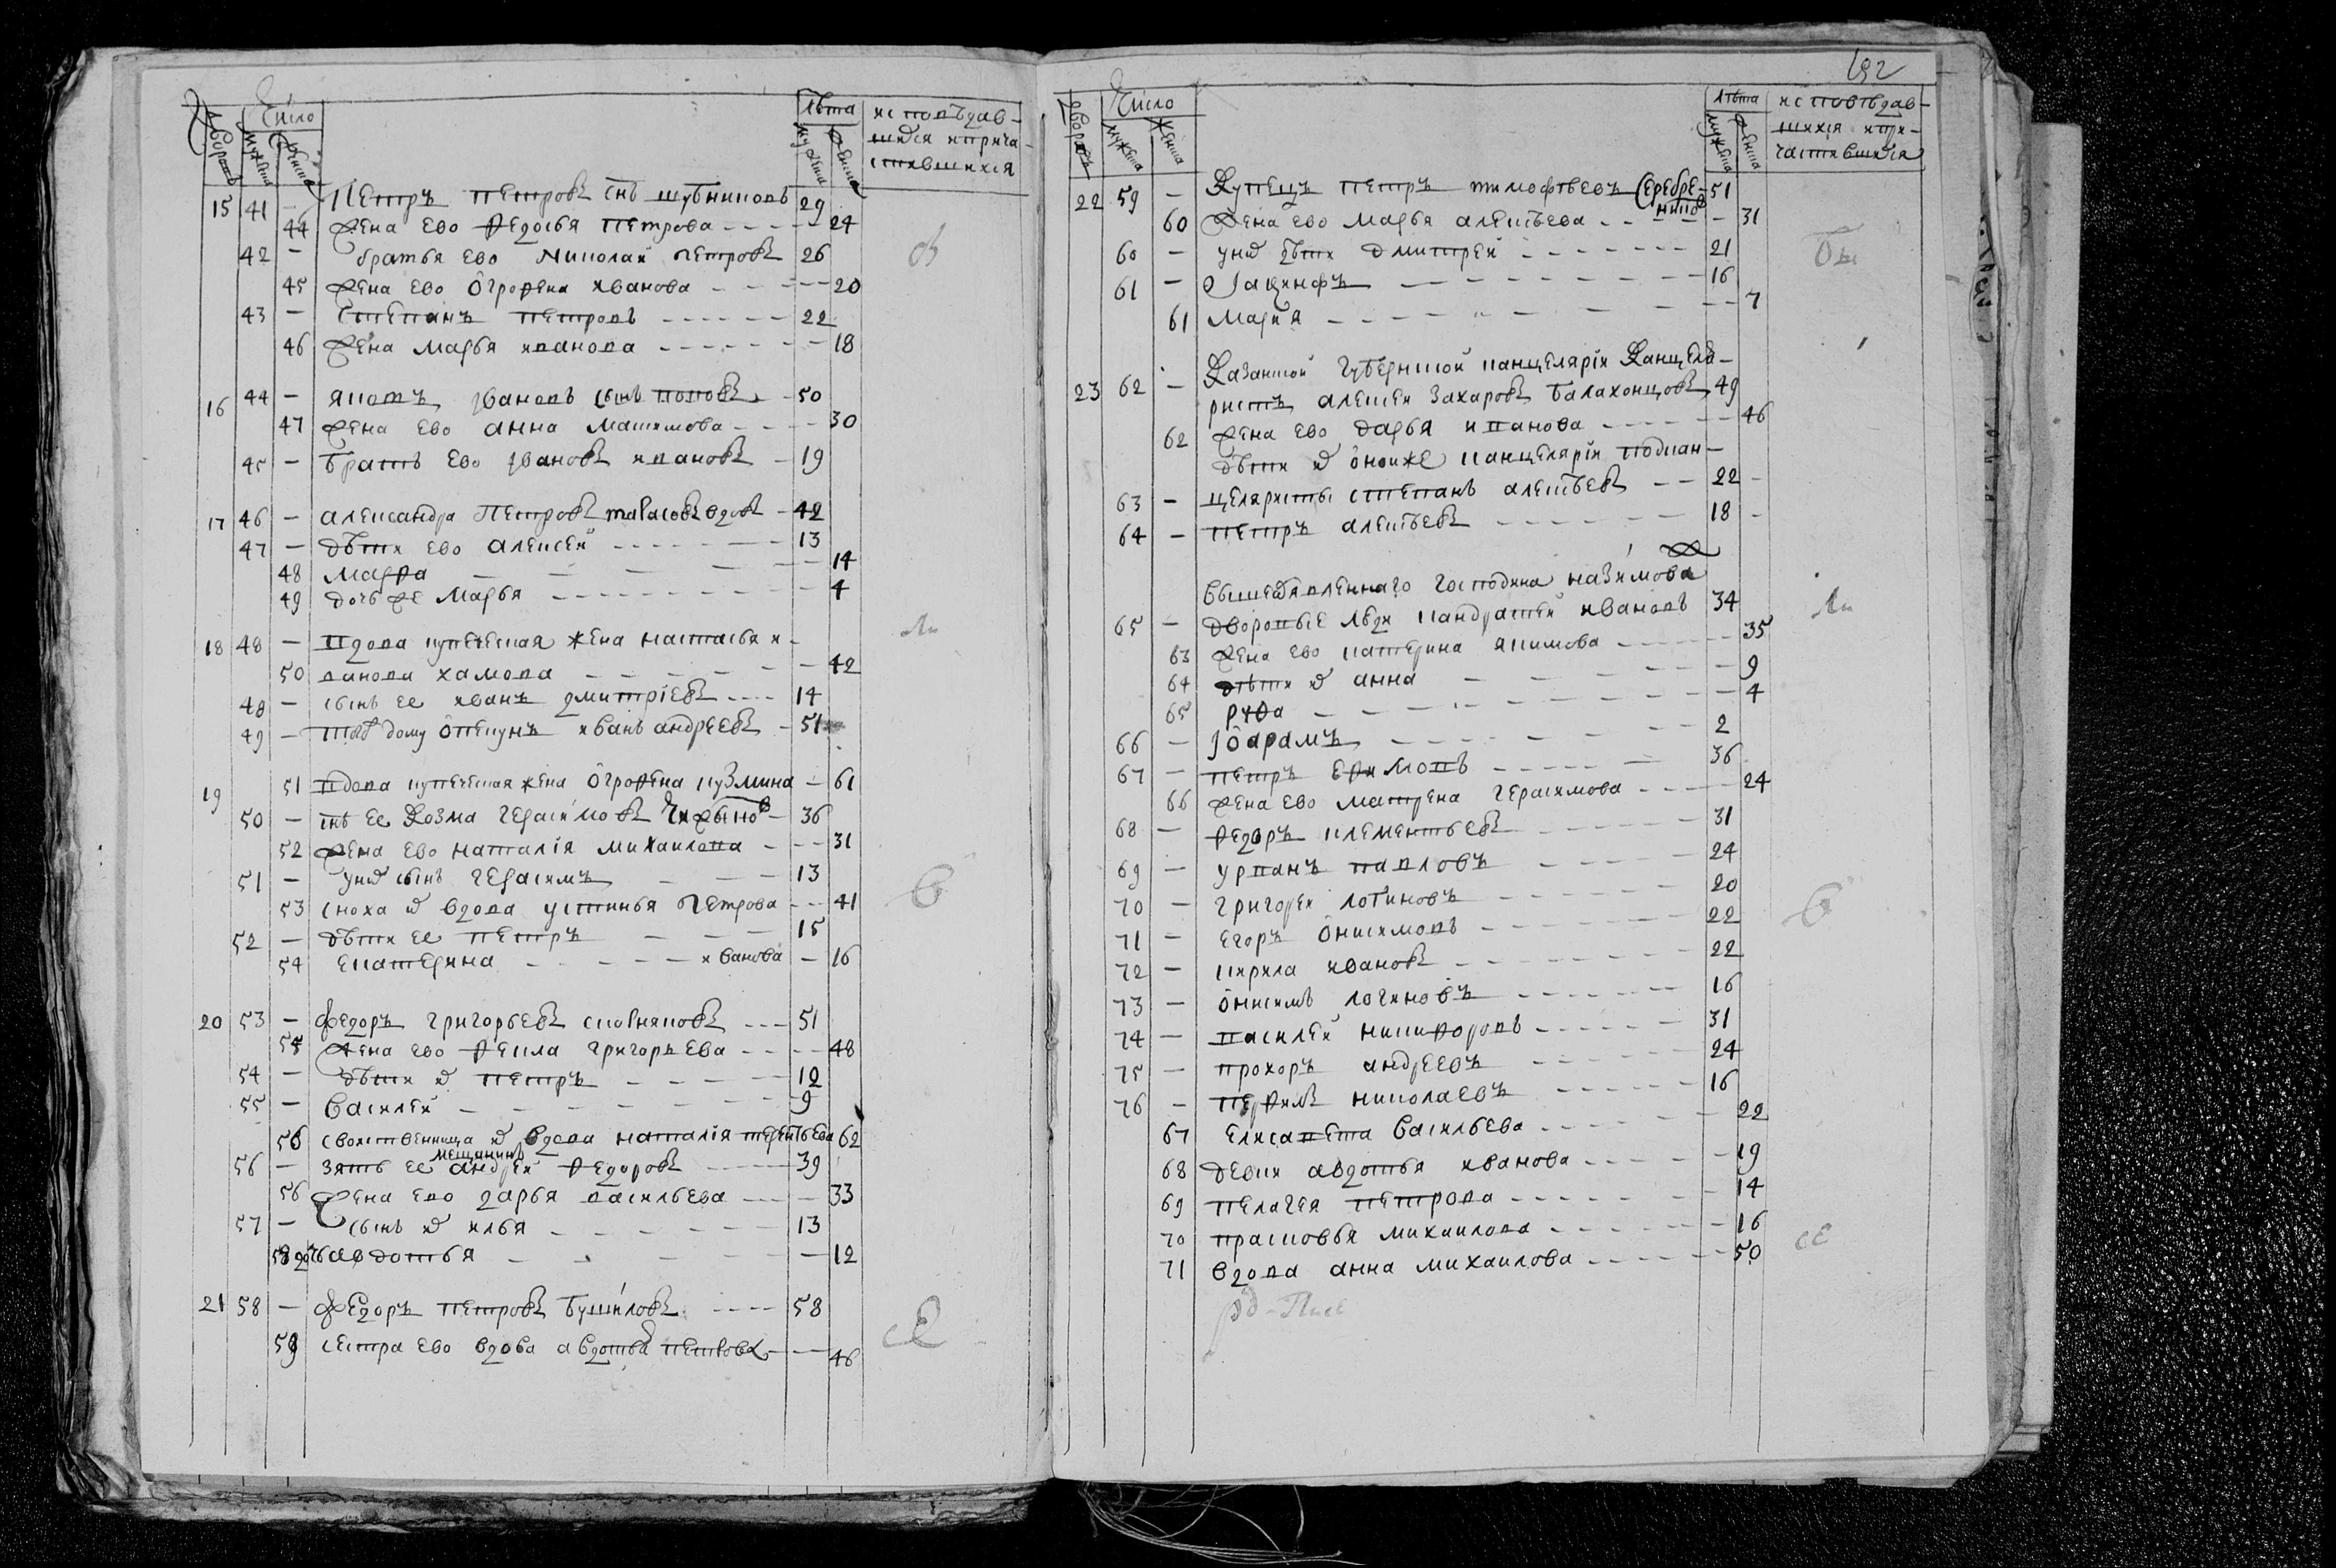 Число
дворовъ
мужеска
женска
лѣта
мужеска
женска
исповѣдав-
шихся и прича-
стившихся
15 41 - Петръ Петровъ снъ Шубниковъ 29
44 жена ево Федосья Петрова - 24
42 - братья ево Николай Петровъ 26
45 жена ево Огрофена Иванова - 20
43 - Степанъ Петровъ - 22
46 жена Марья Иванова - 18
16 44 - Яковъ Ивановъ сынъ Поповъ - 50
47 жена ево Анна Максимова - 30
45 - братъ ево Ивановъ Ивановъ - 19
17 46 - Александра Петровъ Тарасовъ вдовъ - 42
47 - дѣти ево Алексей - 13
48 Марфа - 14
49 дочь же Марья - 4
18 48 - вдова купеческая жена Настасья И-
50 ванова Хамова - 42
48 - сынъ ее Иванъ Дмитріевъ - 14
49 - дому опекунъ Иванъ Андреевъ - 51
19 51 вдова купеческая жена Огрофена Кузмина - 61
50 - снъ ее Козма Герасимовъ - 36
52 жена ево Наталія Михаилова - 31
51 - у них сынъ Герасимъ - 13
53 сноха их вдова Устинья Петрова - 41
52 - дѣти ее Петръ - 15
54 Екатерина - Иванова - 16
20 53 - Федоръ Григорьевъ - 51
55 жена ево Фекла Григорьева - 48
54 - дѣти их Петръ - 12
55 - Василей - 9
56 свойственница их вдова Наталія Терентьева 62
мещанинъ
56 - зять ее Андрей Федоровъ - 39
56 жена ево Дарья Васильева - 33
57 - сынъ их Илья - 13
58 дочь Авдотья - 12
21 58 - Федоръ Петровъ - 58
59 сестра ево вдова Авдотья Петрова - 46
Число
дворовъ
мужеска
женска
лѣта
мужеска
женска
исповѣдав-
шихся и при-
частившихся
22 59 - Купецъ Петръ Тимофѣевъ Серебре- 51
никовъ
60 жена ево Марья Алексѣева - 31
60 - у них дѣти Дмитрей - 21
61 - Иакинфъ - 16
61 Марія - 7
Казанской губернской канцеляріи канцеля-
23 62 - ристъ Алексей Захаровъ Балахонцовъ 49
62 жена ево Дарья Иванова - 46
дѣти их оной же канцеляріи подкан-
63 - целяристы Степанъ Алексѣевъ - 22 -
64 - Петръ Алексѣевъ - 18 -
вышеявленнаго господина Назимова
65 - дворовые люди Кандратей Ивановъ 34
63 жена ево Катерина Якимова - 35
64 дѣти их Анна - 9
65 Руфа - 4
66 - - 2
67 - Петръ Ефимовъ - 36
66 жена ево Матрена Герасимова - 24
68 - Федоръ Клементьевъ - 31
69 - Урванъ Павловъ - 24
70 - Григорей Логиновъ - 20
71 - Егоръ Онисимовъ - 22
72 - Кирила Ивановъ - 22
73 - Онисимъ Логиновъ - 16
74 - Василей Никифоровъ - 31
75 - Прохоръ Андреевъ - 24
76 - Перфилъ Николаевъ - 16
67 Елисавета Васильева - 22
68 девки Авдотья Иванова - 19
69 Пелагея Петрова - 14
70 Прасковья Михаилова - 16
71 вдова Анна Михаилова - 50